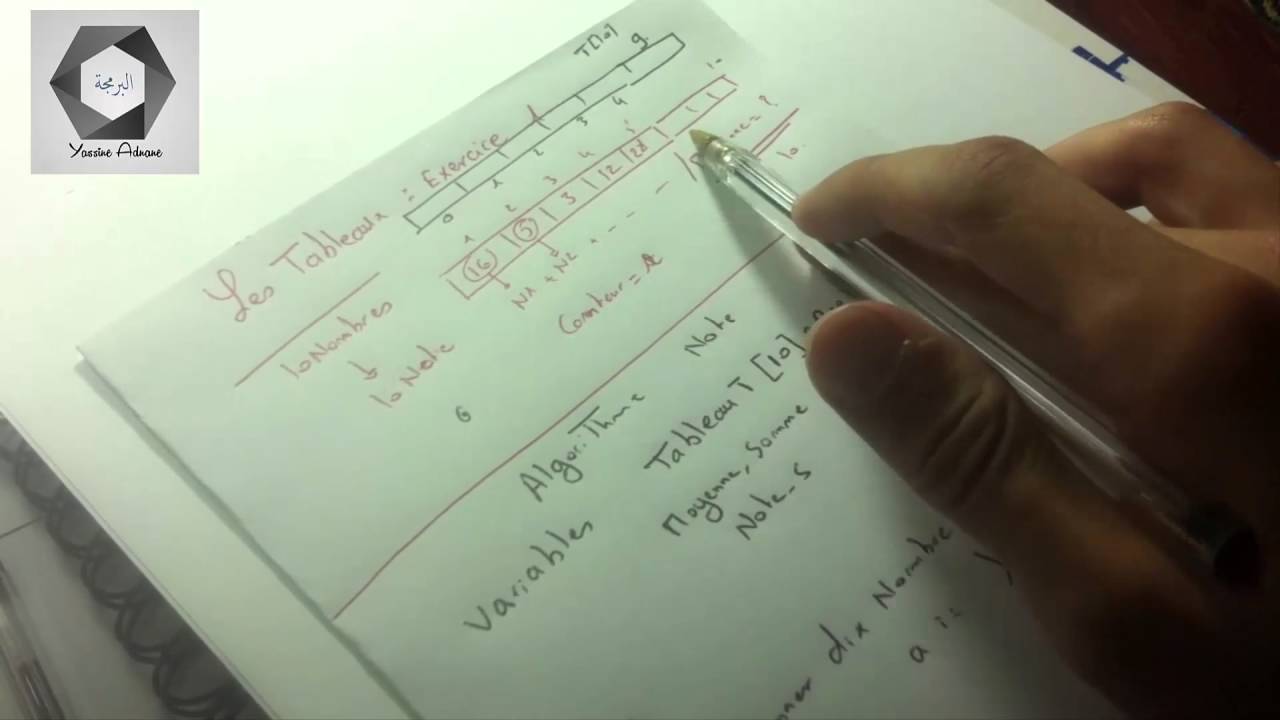 البرمجة
Yassine Adnane
Les Tableaux : Exercice 1
T[10]
0 1 2 3 4 9
1 2 3 4 5 10
16 5 3 12
N1 + N2 + - - -
10
Compteur = 1
10 Nombres
10 Note
6
Algorithme Note
Variables Tableau T [10]
Moyenne, Somme
Note_S
dix Nombre
a